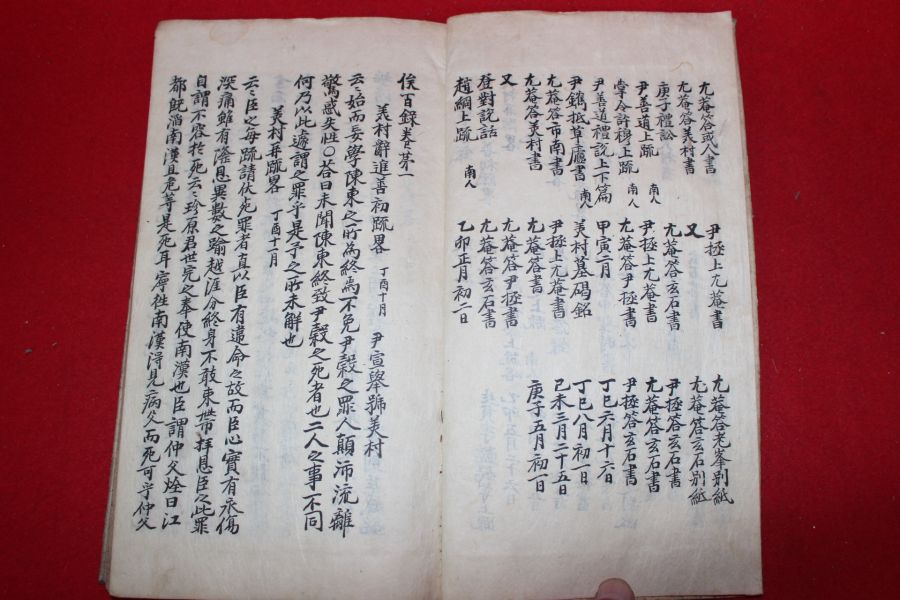 尤菴答或人書
尤菴答美村書
庚子禮訟
尹善道上疏 南人
掌令許穆上疏 南人
尹善道禮說上下篇
尹鑴抵草廬書 南人
尤菴答市南書
尤菴答美村書
又
登對說話
趙絅上疏 南人
尹拯上尤菴書
又
尤菴答玄石書
尹拯上尤菴書
尤菴答尹拯書
甲寅二月
美村墓碣銘
尹拯上尤菴書
尤菴答書
尤菴答尹拯書
尤菴答玄石書
乙卯正月初二日
尤菴答老峯別紙
尤菴答玄石別紙
尹拯答玄石書
尤菴答玄石書
尹拯答玄石書
丁巳六月十六日
丁巳八月初一日
己未三月二十五日
庚子五月初一日
俟百錄卷苐一
美村辭進善初疏畧 丁酉十月 尹宣擧號美村
云云始而妄學陳東之所為終焉不免尹穀之罪人顚沛流離
驚惑失性○答曰未聞陳東終致尹穀之死者也二人之事不同
何乃以此遽謂之罪乎是予之所未解也
美村再疏畧 丁酉十一月
云云臣之每疏請伏宛罪者直以臣有違命之故而臣心實有永傷
深痛雖有隆恩異數之踰越涯分終身不敢束世帶拜恩臣之此罪
自謂不容於死云云珍原君世完之奉使南漢也臣謂仲父烇曰江
都旣淊南漢且危等是死耳寧徃南漢得見病父而死可乎仲父